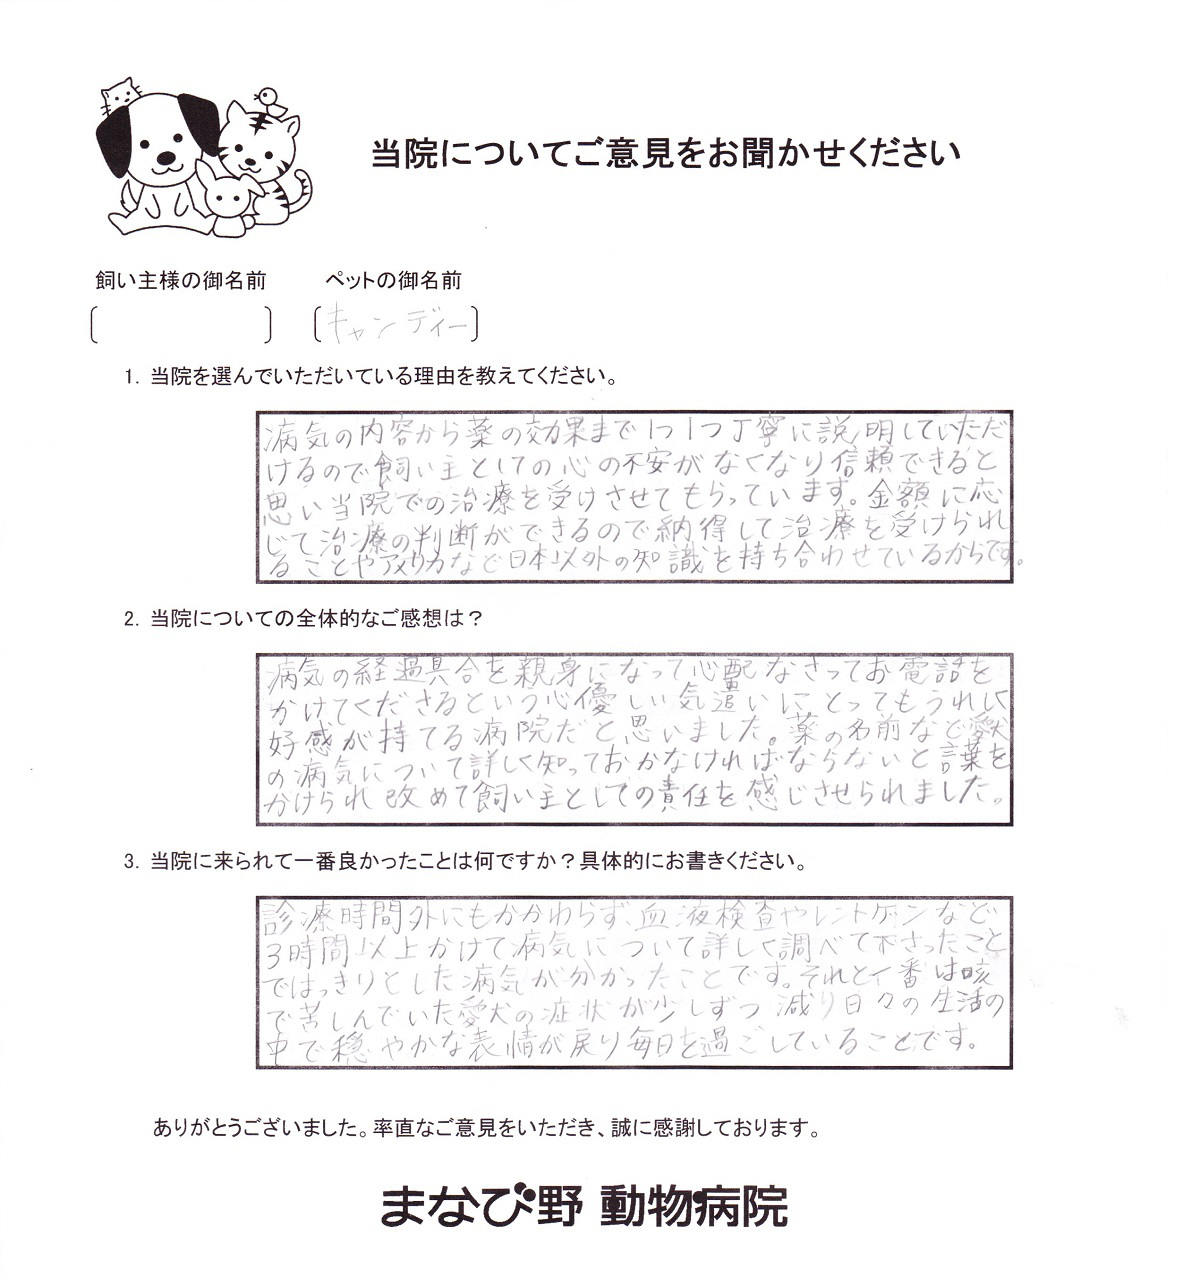 当院についてご意見をお聞かせください
飼い主様の御名前 ペットの御名前
[ ] [キャンディー]
1. 当院を選んでいただいている理由を教えてください。
病気の内容から薬の効果まで1つ1つ丁寧に説明していただ
けるので飼い主としての心の不安がなくなり信頼できると
思い当院での治療を受けさせてもらっています。金額に応
じて治療の判断ができるので納得して治療を受けられれ
ることやアメリカなど日本以外の知識を持ち合わせているからです。
2. 当院についての全体的なご感想は？
病気の経過具合を親身になって心配なさってお電話を
かけてくださるという心優しい気遣いにとってもうれしく
好感が持てる病院だと思いました。薬の名前など愛犬
の病気について詳しく知っておかなければならないと言葉を
かけられ改めて飼い主としての責任を感じさせられました。
3. 当院に来られて一番良かったことは何ですか？具体的にお書きください。
診療時間外にもかかわらず、血液検査やレントゲンなど
3時間以上かけて病気について詳しく調べて下さったこと
ではっきりとした病気が分かったことです。それと一番は咳
で苦しんでいた愛犬の症状が少しずつ減り日々の生活の
中で穏やかな表情が戻り毎日を過ごしていることです。
ありがとうございました。率直なご意見をいただき、誠に感謝しております。
まなび野 動物病院